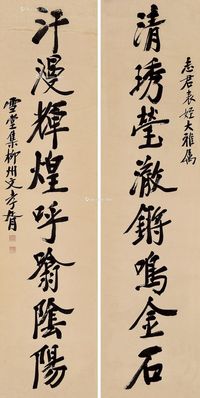 志君表姪大雅屬
清琇瑩澈鏘鳴金石
汗漫輝煌呼噏陰陽
雪堂集柳州文孝胥